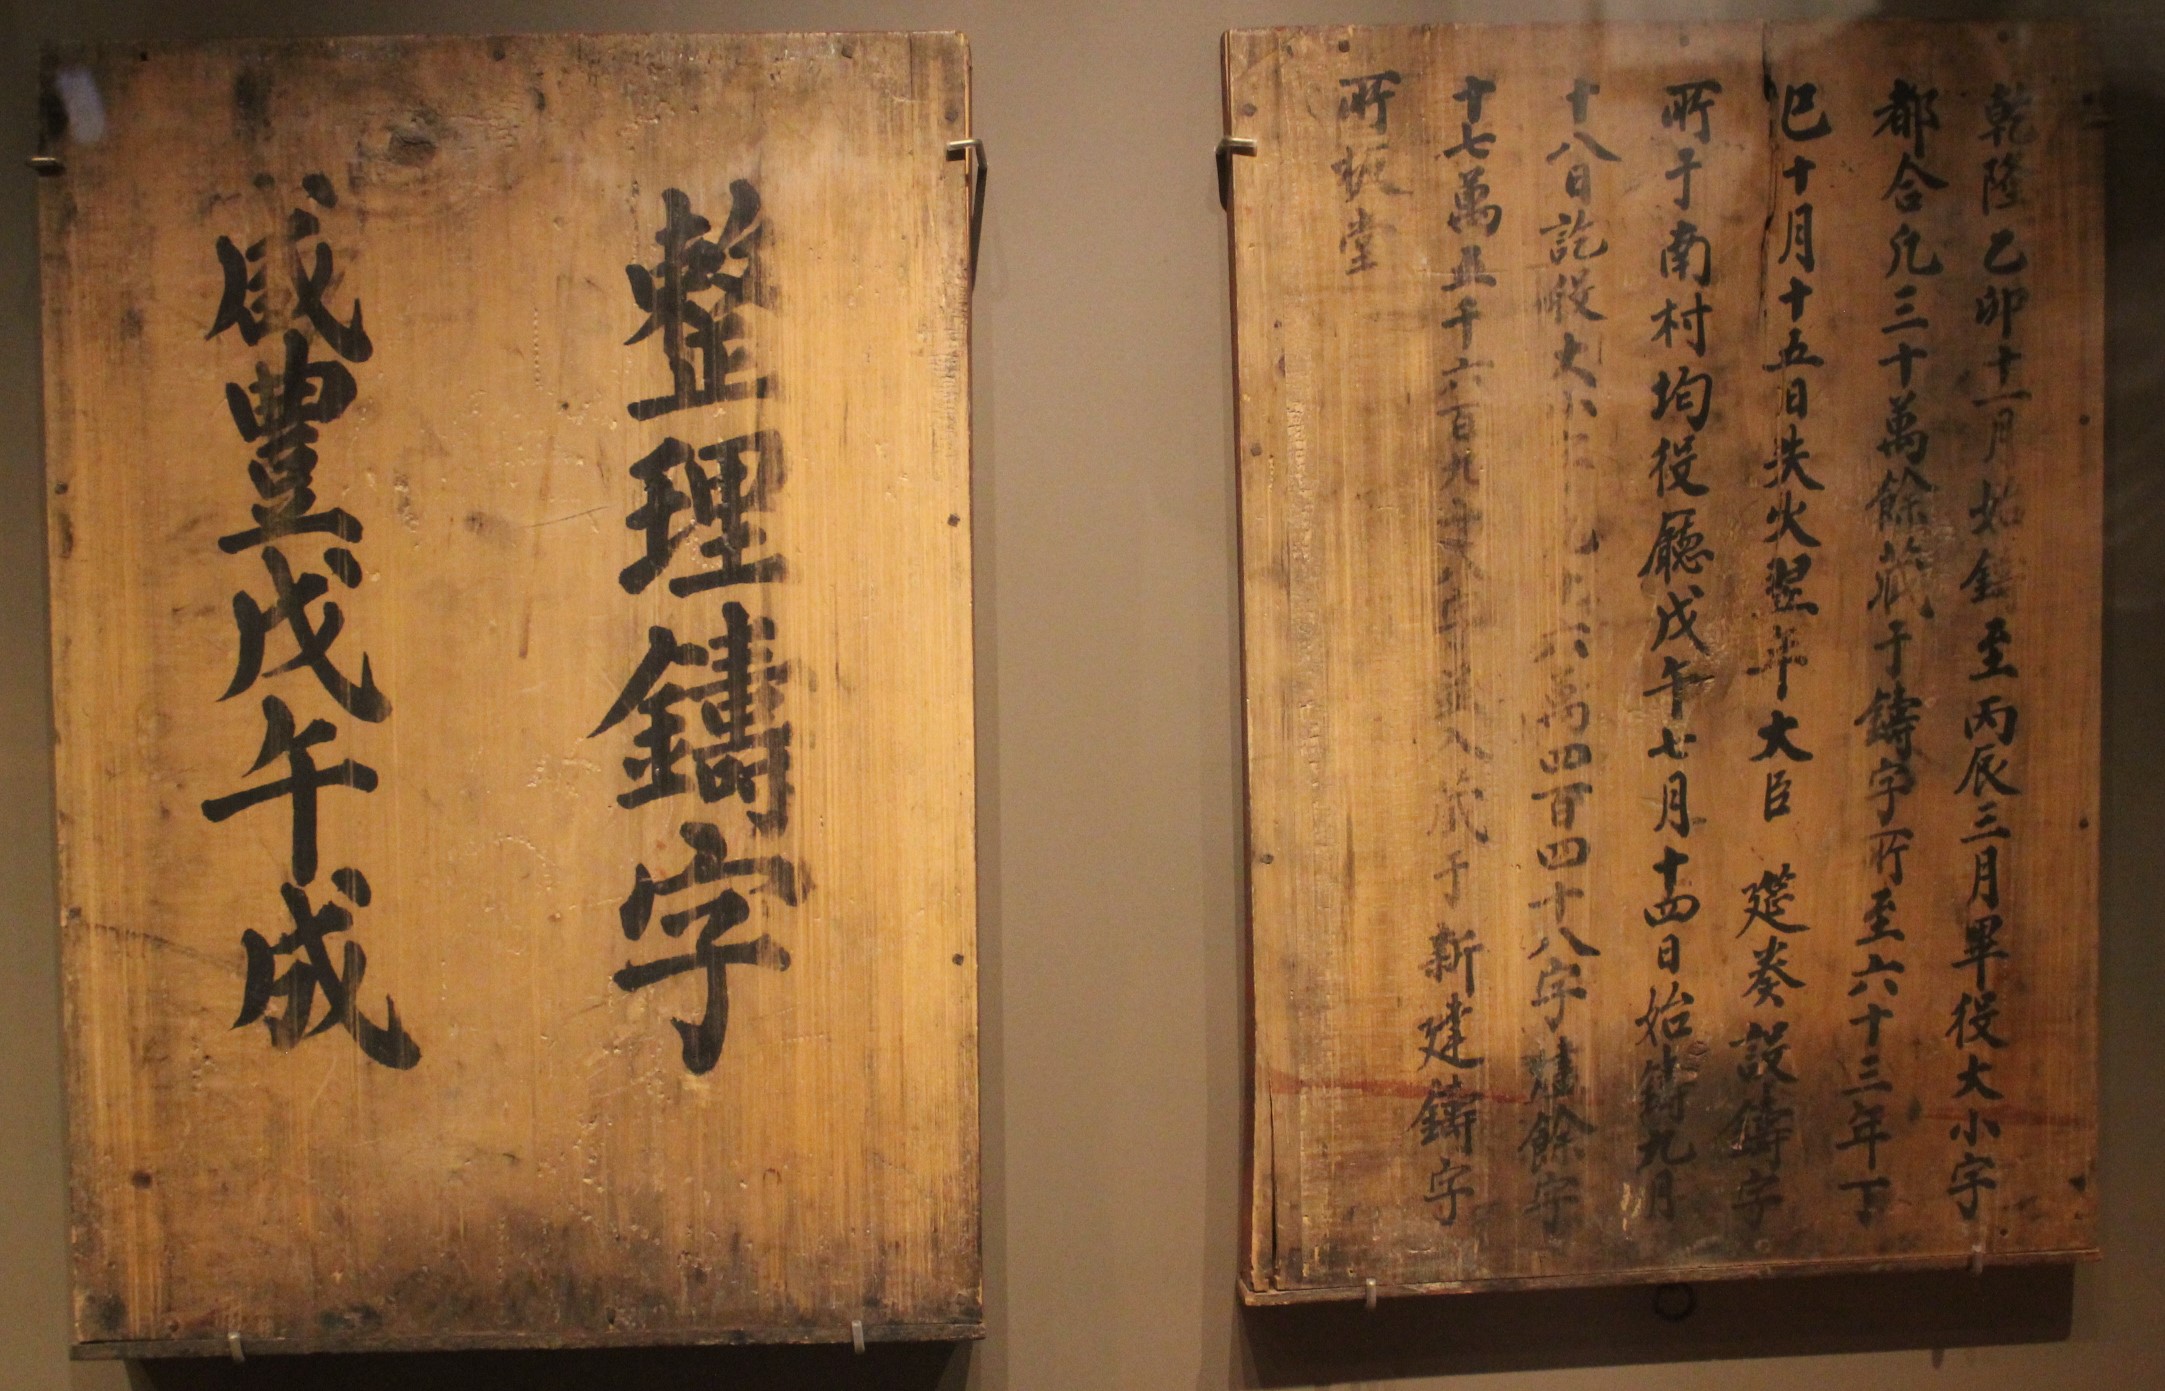 整理鑄字
咸豊戊午成
乾隆乙卯十一月始鑄至丙辰三月畢役大小字
都合凡三十萬餘藏于鑄字所至六十三年丁
巳十月十五日火翌年大臣 筵奏設鑄字
所于南村均役廳戊午七月十四日始鑄九月
十八日訖役大小六萬四百四十八字燼餘字
十七萬五千六百九十八字並入藏于 新建鑄字
所板堂